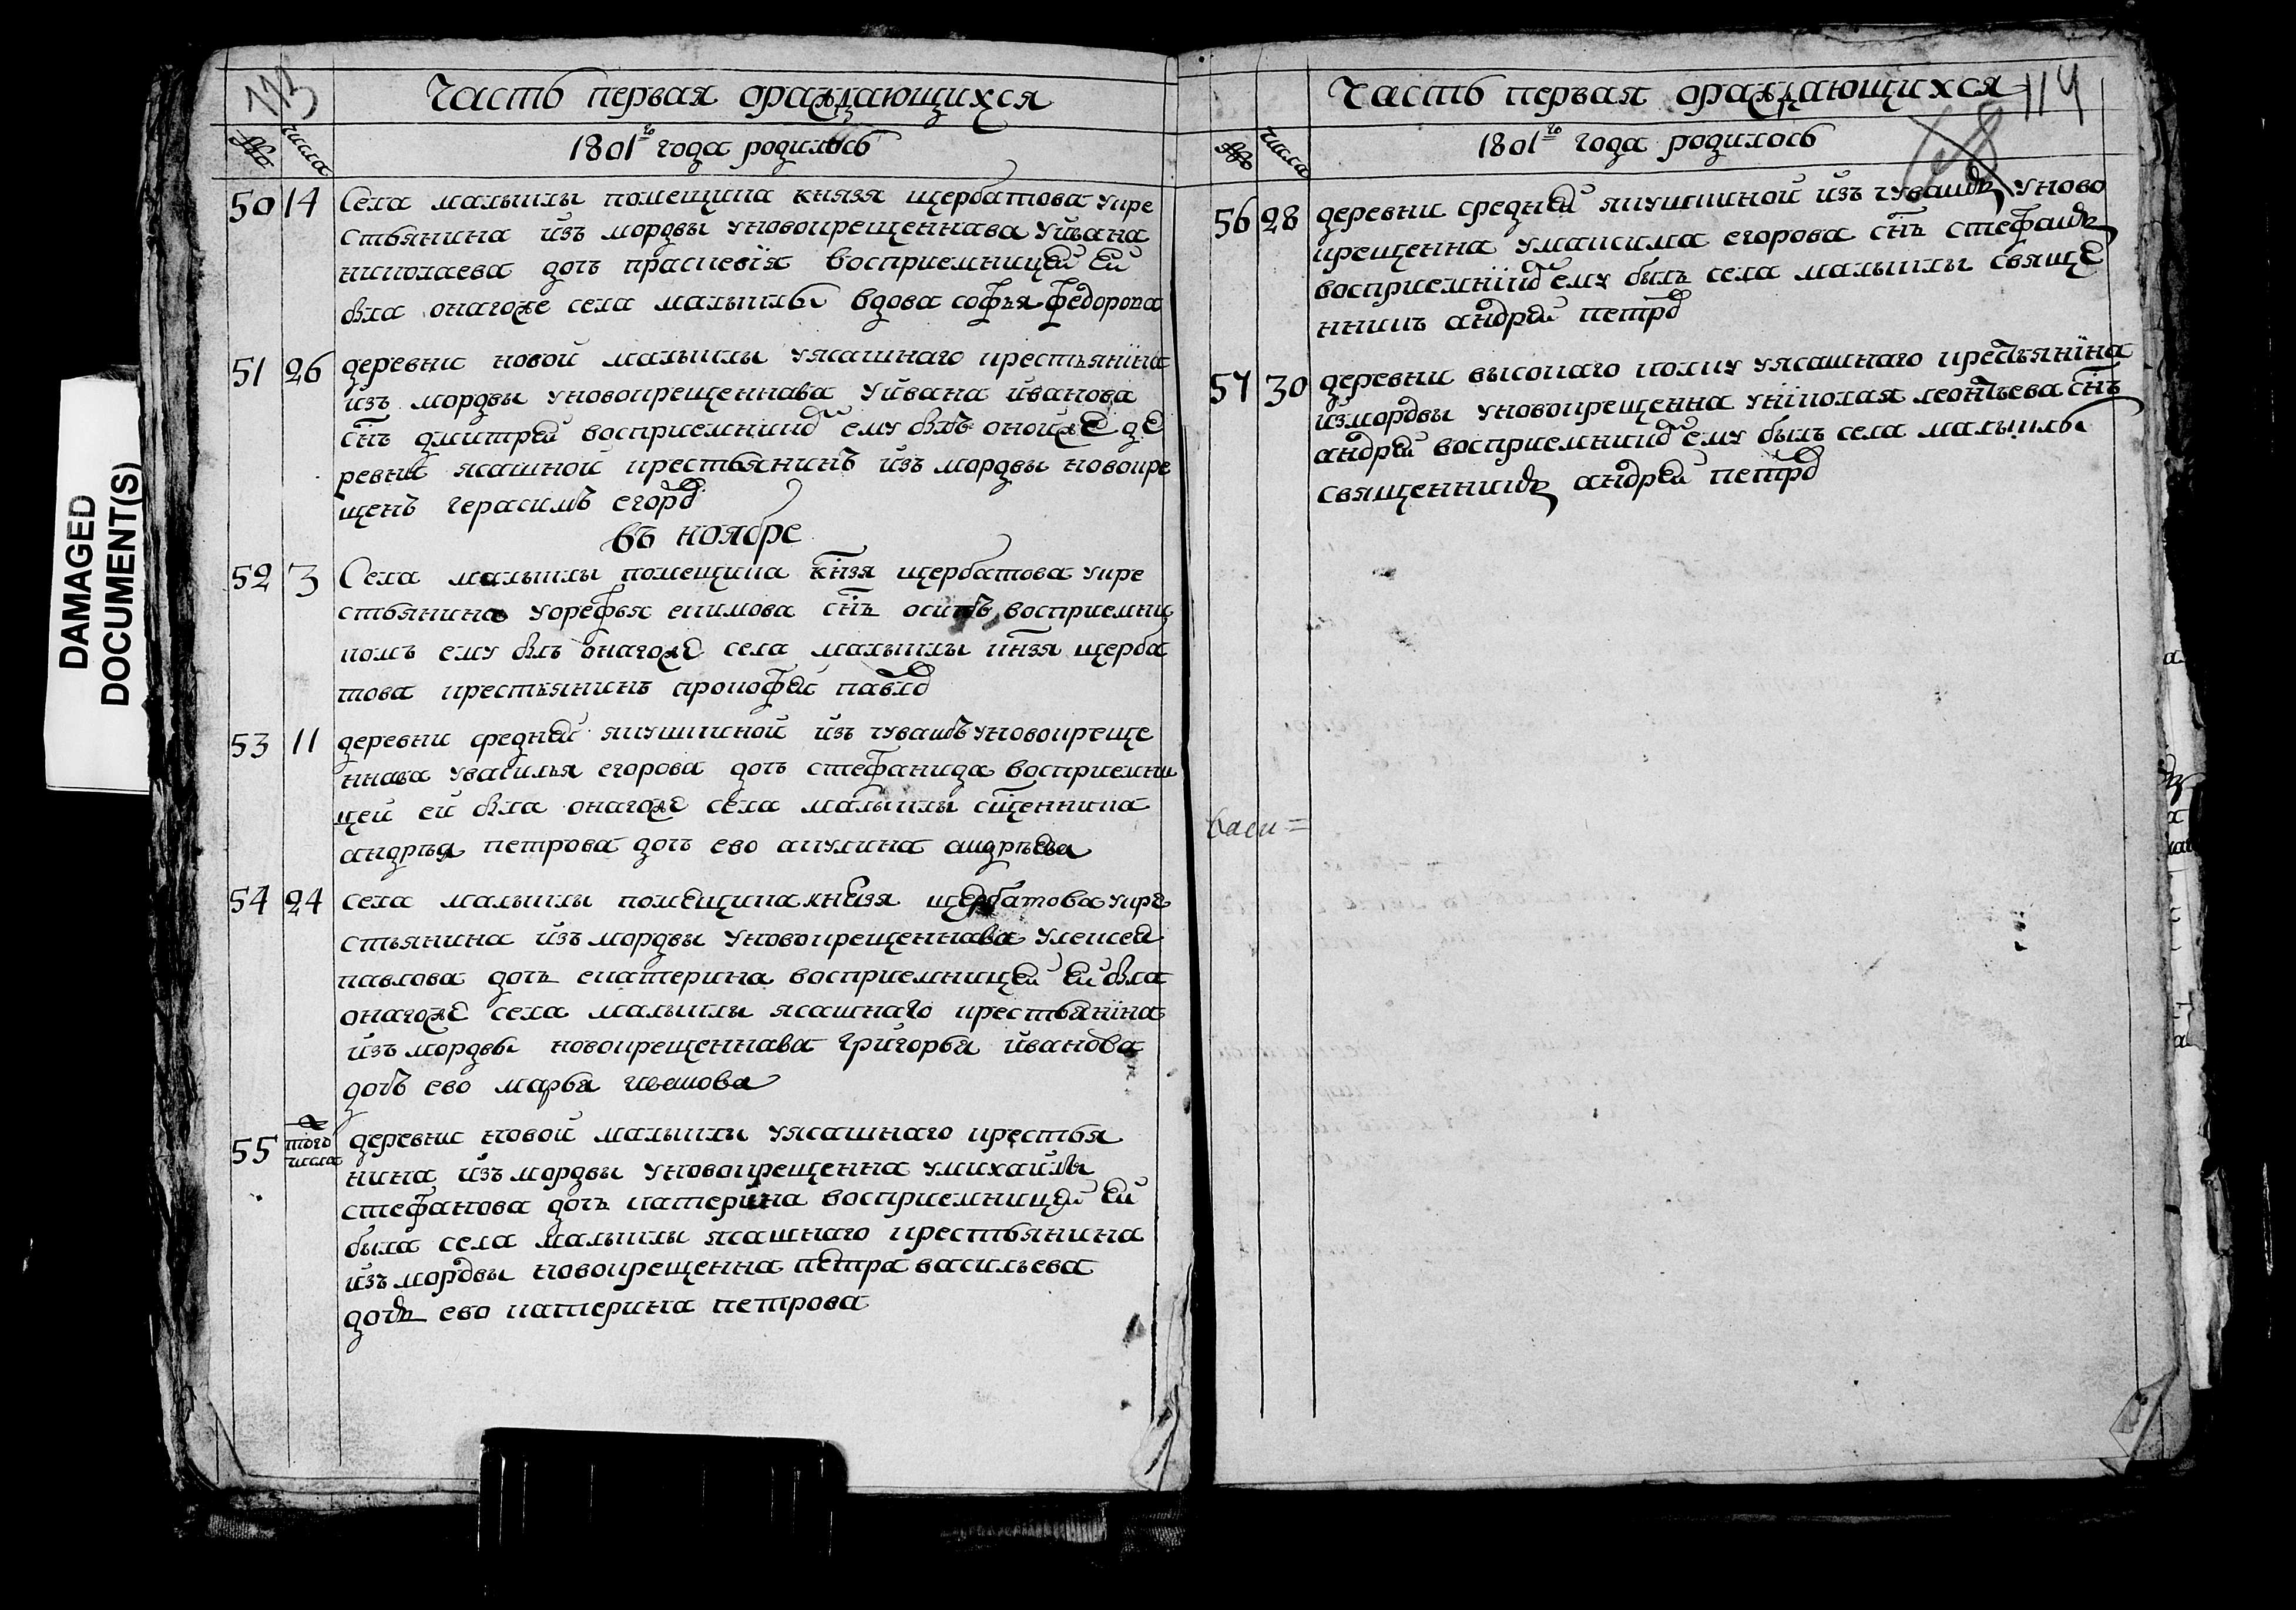 113
Часть первая ораждающихся
№ числа
1801го года родилось
50 14 Села малыклы помещика князя щербатова укре
стьянина изъ мордвы уновокрещеннава уивана
николаева дочь праскевїя восприемницей ей
была онагоже села малыклы вдова софья федорова
51 26 деревни новой малыклы уясашнаго крестьянина
изъ мордвы уновокрещеннава уивана иванова
снъ дмитрей восприемникомъ ему былъ оной же де
ревни ясашной крестьянинъ изъ мордвы новокре
щенъ герасимъ егоровъ
въ ноябре
52 3 Села малыклы помещика кнзя щербатова укре
стьянина уорефья екимова снъ осипъ восприемни
комъ ему былъ онагоже села малыклы кнзя щерба
това крестьянинъ прокофей павловъ
53 11 деревни средней якушкиной изъ чувашъ уновокреще
ннава увасилья егорова дочь стефанида восприемни
цей ей была онагоже села малыклы сщенника
андрея петрова дочь ево акулина андреева
54 24 села малыклы помещика князя щербатова укре
стьянина изъ мордвы уновокрещеннава уелисея
павлова дочь екатерина восприемницей ей была
онагоже села малыклы ясашнаго крестьянина
изъ мордвы новокрещеннава григорья иванова
дочь ево марья
55 того числа деревни новой малыклы уясашнаго крестья
нина изъ мордвы уновокрещенна умихайлы
стефанова дочь катерина восприемницей ей
была села малыклы ясашнаго крестьянина
изъ мордвы новокрещенна петра васильева
дочь ево катерина петрова
DAMAGED
DOCUMENT(S)
Часть первая ораждающихся 114
68
№ числа
1801го года родилось
56 28 деревни средней якушкиной изъ чувашъ уново
крещенна умаксима егорова снъ стефанъ
восприемникомъ ему былъ села малыклы свяще
нникъ андрей петровъ
57 30 деревни высокаго колку уясашнаго крестьянина
измордвы уновокрещенна униколая леонтьева снъ
андрей восприемникомъ ему былъ села малыклы
священникъ андрей петровъ